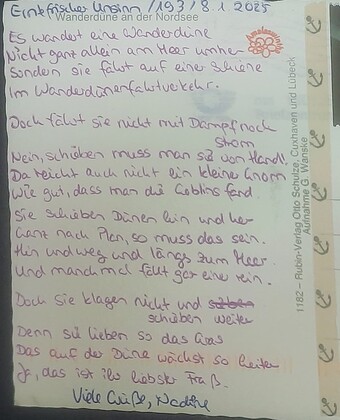 Erntefrischer Unsinn /193/ 8.1.2025
Wanderdüne an der Nordsee
Es wandert eine Wanderdüne
Nicht ganz allein am Meer umher
Sondern sie fährt auf einer Schiene
Im Wanderdünenfahrverkehr.
Doch fährt sie nicht mit Dampf noch
Strom
Nein, schieben muss man sie von Hand.
Da reicht auch nicht ein kleiner Gnom
Wie gut, dass man die Goblins fand
Sie schieben Dünen hin und her
Ganz nach Plan, so muss das sein.
Hin und weg und längs zum Meer
Und manchmal fällt gar eine rein.
Doch sie klagen nicht und
schieben weiter
Denn sie lieben so das Gras
Das auf der Düne wächst so heiter
Ja, das ist ihr liebster Fraß.
Viele Grüße, Nadine
1182 – Rubin-Verlag Otto Schulze, Cuxhaven und Lübeck
Aufnahme G. Wanske